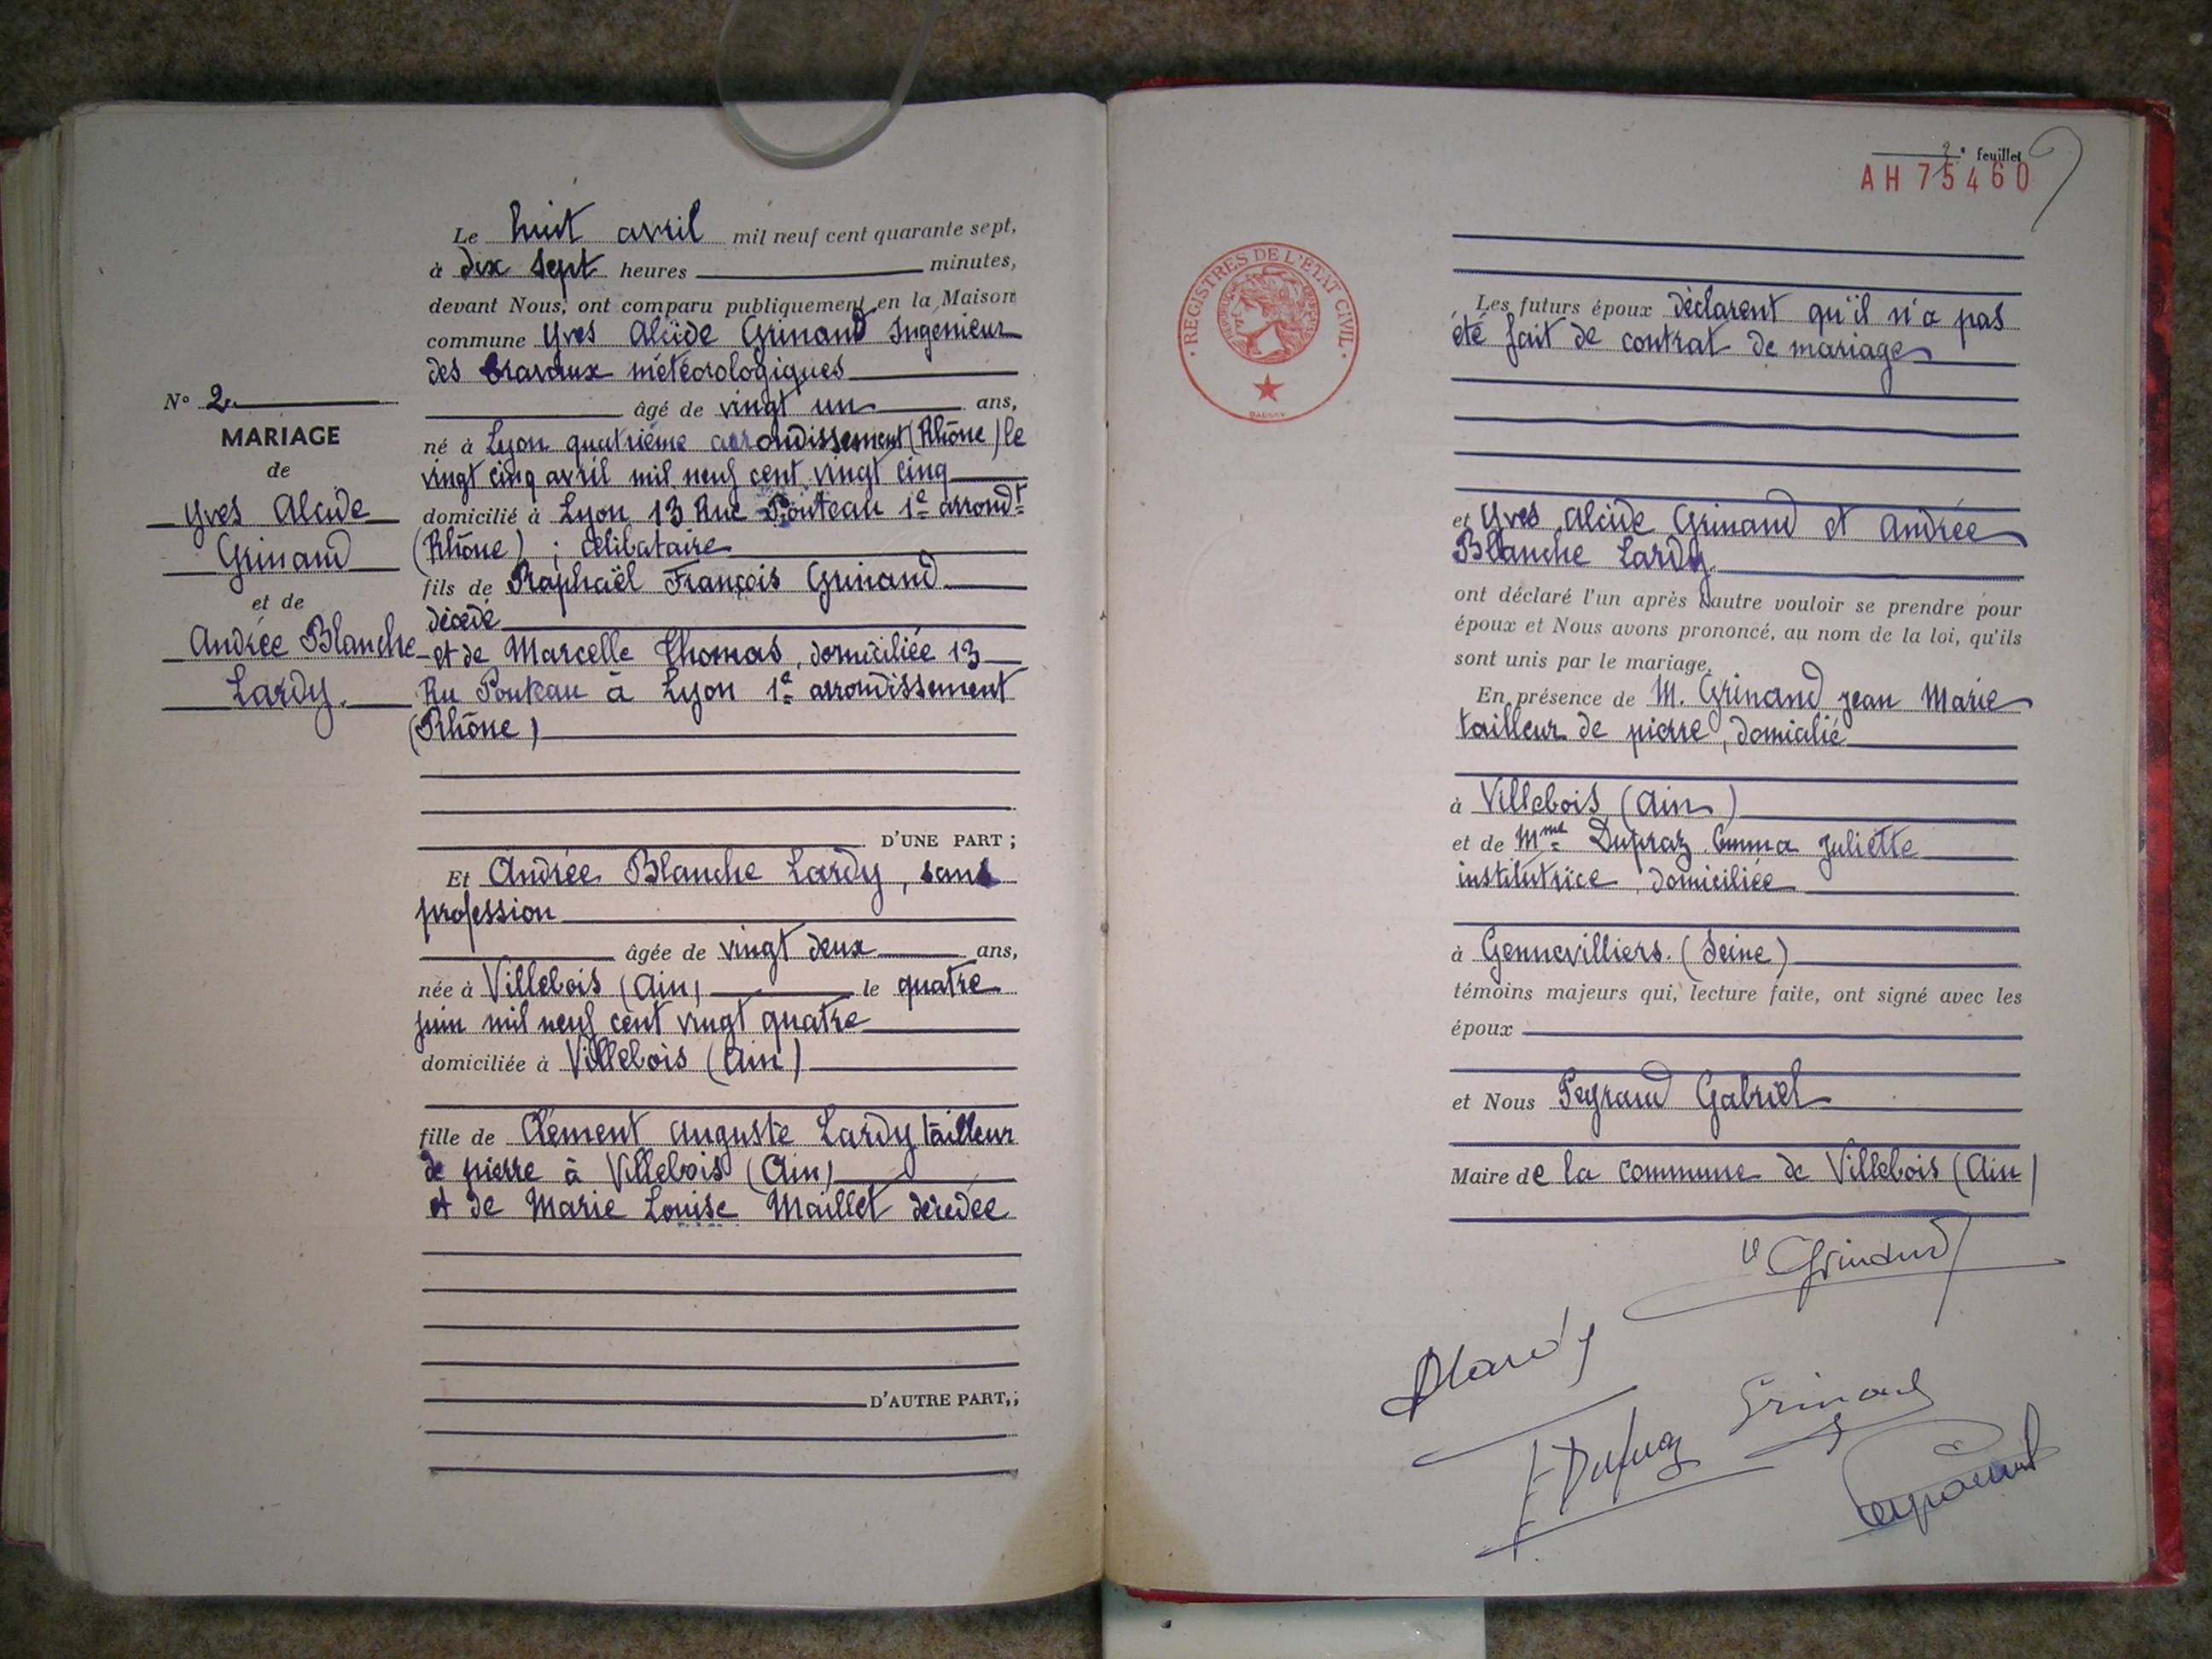 N° 2
MARIAGE
de
Yves Alcide
Grinand
et de
Andrée Blanche
Lardy.
Le huit avril mil neuf cent quarante sept,
à dix sept heures minutes,
devant Nous, ont comparu publiquement en la Maison
commune Yves Alcide Grinand Ingénieur
des travaux météorologiques
âgé de vingt un ans,
né à Lyon quatrième arrondissement (Rhône) le
vingt cinq avril mil neuf cent vingt cinq
domicilié à Lyon 13 Rue Pouteau 1e arrondt
(Rhône) ; célibataire
fils de Raphaël François Grinand
décédé
et de Marcelle Thomas, domiciliée 13
Ru Pouteau à Lyon 1e arrondissement
(Rhône)
D'UNE PART ;
Et Andrée Blanche Lardy, sans
profession
âgée de vingt deux ans,
née à Villebois (Ain) le quatre
juin mil neuf cent vingt quatre
domiciliée à Villebois (Ain)
fille de Clément Auguste Lardy tailleur
de pierre à Villebois (Ain)
et de Marie Louise Maillet décédée
D'AUTRE PART, ;
2e feuillet
AH 75460
REGISTRES DE L'ÉTAT CIVIL
Les futurs époux déclarent qu'il n'a pas
été fait de contrat de mariage
et Yves Alcide Grinand et Andrée
Blanche Lardy.
ont déclaré l'un après l'autre vouloir se prendre pour
époux et Nous avons prononcé, au nom de la loi, qu'ils
sont unis par le mariage.
En présence de M. Grinand Jean Marie
tailleur de pierre, domicilié
à Villebois (Ain)
et de Mme Dupraz Emma Juliette
institutrice, domiciliée
à Gennevilliers. (Seine)
témoins majeurs qui, lecture faite, ont signé avec les
époux
et Nous Peyraud Gabriel
Maire de la commune de Villebois (Ain)
Grinand
ALardy
Grinand
E Dupraz
Peyraud